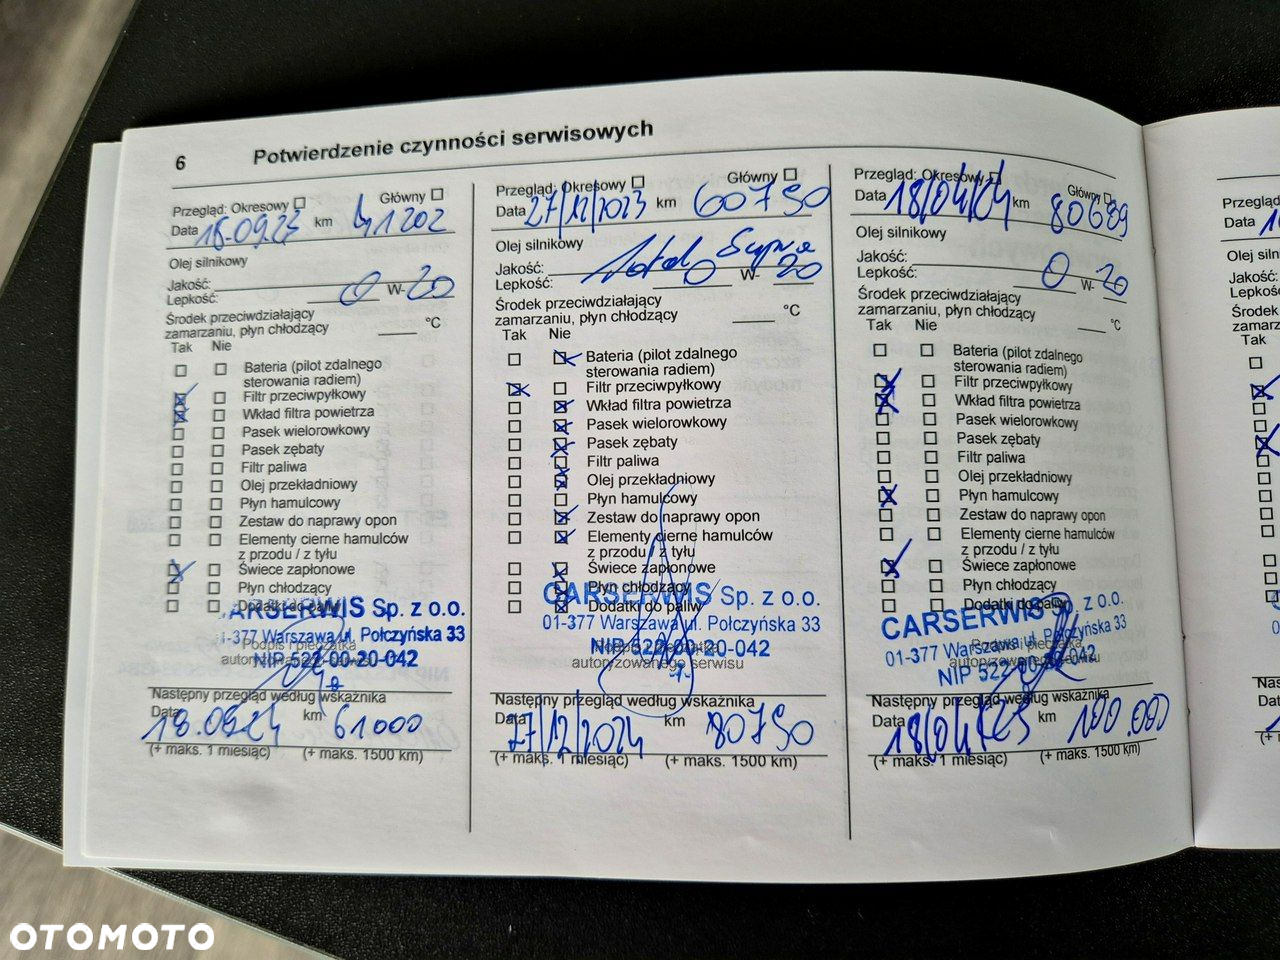 6 Potwierdzenie czynności serwisowych
Przegląd: Okresowy Główny
Data 18.09.23 km 41202
Olej silnikowy
Jakość:
Lepkość: 0 W-20
Środek przeciwdziałający
zamarzaniu, płyn chłodzący °C
Tak Nie
Bateria (pilot zdalnego
sterowania radiem)
Filtr przeciwpyłkowy
Wkład filtra powietrza
Pasek wielorowkowy
Pasek zębaty
Filtr paliwa
Olej przekładniowy
Płyn hamulcowy
Zestaw do naprawy opon
Elementy cierne hamulców
z przodu / z tyłu
Świece zapłonowe
Płyn chłodzący
Dodatki do paliw
CARSERWIS Sp. z o.o.
01-377 Warszawa ul. Połczyńska 33
Podpis i pieczątka
NIP 522-00-20-042
autoryzowanego serwisu
Następny przegląd według wskaźnika
Data 18.09.24 km 61000
(+ maks. 1 miesiąc) (+ maks. 1500 km)
Przegląd: Okresowy Główny
Data 27/12/2023 km 60750
Olej silnikowy
Jakość: Total
Lepkość: 0 W- 20
Środek przeciwdziałający
zamarzaniu, płyn chłodzący °C
Tak Nie
Bateria (pilot zdalnego
sterowania radiem)
Filtr przeciwpyłkowy
Wkład filtra powietrza
Pasek wielorowkowy
Pasek zębaty
Filtr paliwa
Olej przekładniowy
Płyn hamulcowy
Zestaw do naprawy opon
Elementy cierne hamulców
z przodu / z tyłu
Świece zapłonowe
Płyn chłodzący
Dodatki do paliw
CARSERWIS Sp. z o.o.
01-377 Warszawa ul. Połczyńska 33
NIP 522-00-20-042
autoryzowanego serwisu
Następny przegląd według wskaźnika
Data 27/12/2024 km 80750
(+ maks. 1 miesiąc) (+ maks. 1500 km)
Przegląd: Okresowy Główny
Data 18/04/24 km 80689
Olej silnikowy
Jakość:
Lepkość: 0 W- 20
Środek przeciwdziałający
zamarzaniu, płyn chłodzący °C
Tak Nie
Bateria (pilot zdalnego
sterowania radiem)
Filtr przeciwpyłkowy
Wkład filtra powietrza
Pasek wielorowkowy
Pasek zębaty
Filtr paliwa
Olej przekładniowy
Płyn hamulcowy
Zestaw do naprawy opon
Elementy cierne hamulców
z przodu / z tyłu
Świece zapłonowe
Płyn chłodzący
Dodatki do paliw
CARSERWIS Sp. z o.o.
01-377 Warszawa ul. Połczyńska 33
Podpis i pieczątka
autoryzowanego serwisu
NIP 522-00-20-042
Następny przegląd według wskaźnika
Data 18/04/25 km 100.000
(+ maks. 1 miesiąc) (+ maks. 1500 km)
Data
Środek
Tak
OTOMOTO